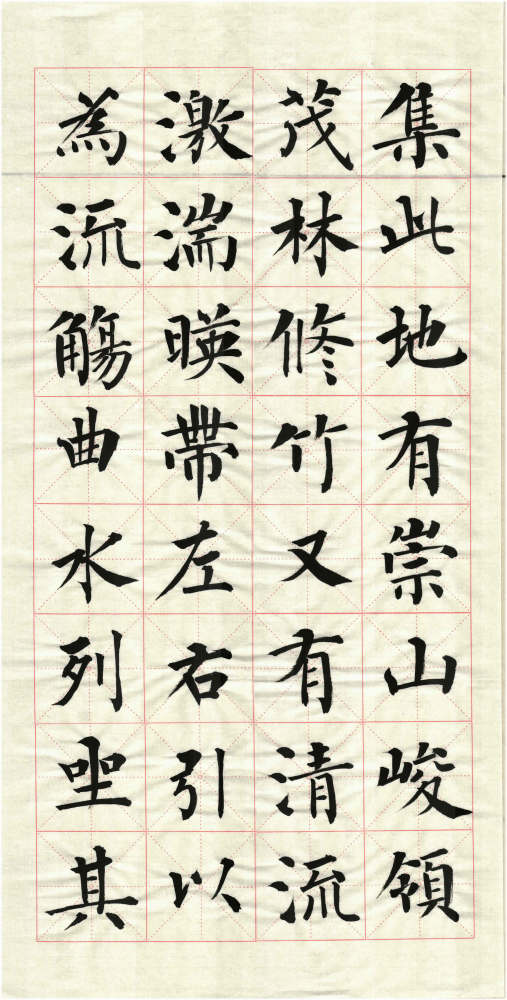 集此地有崇山峻領
茂林修竹又有清流
激湍暎帶左右引以
為流觴曲水列坐其